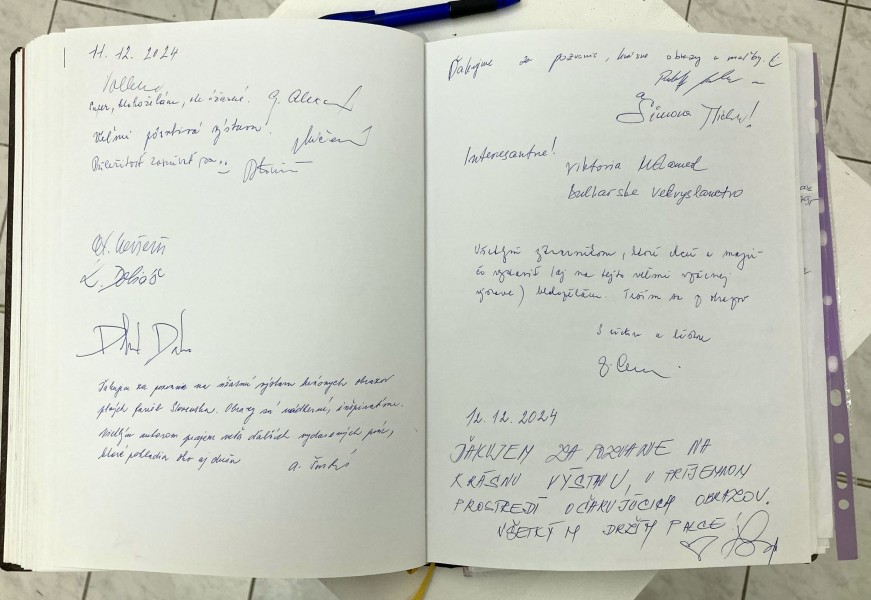 11. 12. 2024
Super, blahoželám,
G. Alexand
Veľmi pôsobivá výstava.
Príležitosť zasnívať sa..
L. Doliáč
Ďakujem za pozvanie na úžasnú výstavu krásnych obrazov
plných farieb Slovenska. Obrazy sú nádherné, inšpiratívne.
Všetkým autorom prajem veľa ďalších vydarených prác,
ktoré pohladia oko aj dušu
A.
Ďakujeme za pozvanie, krásne obrazy a maľby.
Simona
Interesantné!
Viktoria
Bulharske Velvyslanctvo
Všetkým výtvarníkom, ktorí chcú a majú
čo vystaviť (aj na tejto veľmi vzácnej
výstave) blahoželám. Teším sa z obrazov
S úctou a láskou
12. 12. 2024
ĎAKUJEM ZA POZVANIE NA
KRÁSNU VÝSTAVU, V PRÍJEMNOM
PROSTREDÍ OČARUJÚCICH OBRAZOV.
VŠETKÝM DRŽÍM PALCE!